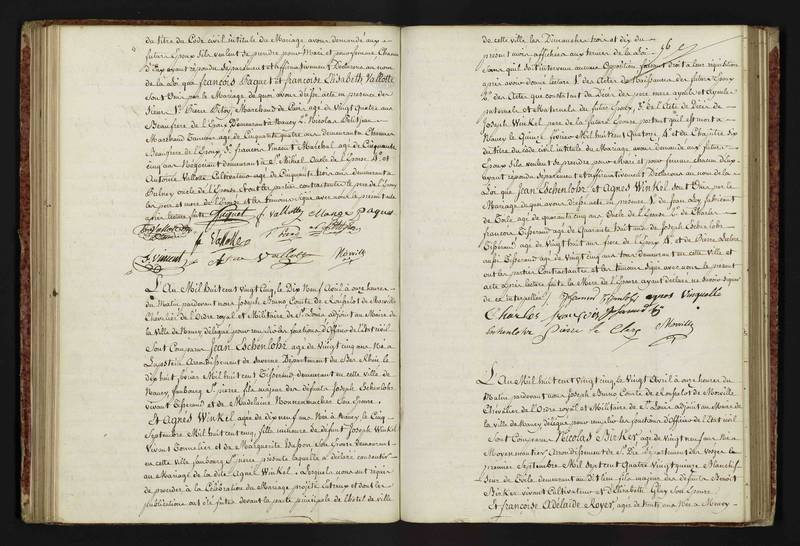 du titre du Code civil intitulé du Mariage avons demandé aux
futurs Epoux s'ils veulent se prendre pour Mari et pour femme, Chacun
d'Eux ayant répondu séparément et affirmativement Déclarons au nom
de la Loi que françois Paquet et françoise Elisabeth Vallotte
sont Unis par le Mariage de quoi avons dressé acte en présence des
Sieurs 1° Pierre Marchand de Cuirs agé de Vingt quatre ans
Beaufrere de l'Epoux Demeurant à Nancy 2° Nicolas
Marchand Tanneur agé de Cinquante quatre ans demeurant à
Beaufrere de l'Epoux, 3° françois Vincent Maréchal agé de Cinquante
cinq ans Négociant demeurant à St Mihiel Oncle de l'Epouse 4° et
Antoine Vallotte Cultivateur agé de Cinquante trois ans demeurant à
Pulney oncle de l'Epouse. Et ont les parties contractantes le pere de l'Epoux
les pere et mere de l'Epouse et les témoins signé avec nous le présent acte
après lecture faite Paquet f Vallotte Paquet
Vallotte
f. Vincent Vallotte Morville
L'An Mil huit cent Vingt Cinq, le Dix Neuf Avril à onze heures
du Matin pardevant nous Joseph Bruno Comte de Morville
Chevalier de l'Ordre royal et Militaire de St Louis, adjoint au Maire de
la Ville de Nancy délégué pour remplir les fonctions d'Officier de l'Etat civil
Sont Comparus Jean Eschenlohr agé de Vingt cinq ans Né à
Arrondissement de Saverne Département du Bas Rhin, le
dix huit Mil huit cent Tisserand demeurant en cette ville de
Nancy, faubourg St pierre fils majeur des défunts Joseph Eschenlohr
Vivant Tisserand et de Madeleine Nonnenmacher Son Epouse.
Et Agnès Winkel agée de dix neuf ans Née à Nancy le Cinq
Septembre Mil huit cent cinq, fille mineure de défunt Joseph Winkel
Vivant Tonnelier et de Marguerite Son Epouse demeurant
en cette ville faubourg St pierre présente laquelle a déclaré consentir
au Mariage de la dite Agnès Winkel. Lesquels nous ont requis
de procéder à la Célébration du Mariage projeté entreux et dont les
publications ont été faites devant la porte principale de l'hotel de ville
56
de cette ville les Dimanches trois et dix du
présent mois affichées aux termes de la loi
Sans qu'il soit intervenu aucune Opposition faisant droit à leur réquisition
après avoir donné lecture 1° des Actes de Naissance des futurs Epoux
2° des Actes qui constatent du Décès des pere mere ayeuls et Ayeules
paternels et Maternels du futur Epoux, 3° de l'Acte de Décès de
Joseph Winkel pere de la future Epouse portant qu'il est mort à
Nancy le Quinze février Mil huit cent Quatorze 4° et du Chapitre six
du titre du code civil intitulé du Mariage avons demandé aux futurs
Epoux s'ils veulent se prendre pour Mari et pour femme chacun d'Eux
ayant répondu séparément et affirmativement Déclarons au nom de la
Loi que Jean Eschenlohr et Agnès Winkel sont Unis par le
Mariage de quoi avons dressé acte en présence 1° de Jean
de Toile agé de quarante cinq ans Oncle de l'Epouse 2° de Charles
françois Tisserand agé de Quarante huit ans de Joseph Eschenlohr
Tisserand agé de Vingt huit ans frere de l'Epoux 4° et de Pierre Leclere
aussi Tisserand agé de Vingt cinq ans tous demeurant en cette Ville et
ont les parties Contractantes et les témoins signé avec nous le présent
acte après lecture faite la Mere de l'Epouse ayant déclaré ne savoir signer
de ce interpellée
Charles françois
eschenlohr pierre le Clerc Morville
L'An Mil huit cent Vingt cinq, le Vingt Avril à onze heures du
Matin, pardevant nous Joseph Bruno Comte de Morville
Chevalier de l'Ordre royal et Militaire de St Louis adjoint au Maire de
la Ville de Nancy délégué pour remplir les fonctions d'Officier de l'Etat civil
Sont Comparus Nicolas Birker agé de vingt neuf ans Né à
Moyenmoutier Arrondissement de St Dié Département des Vosges le
premier Septembre Mil sept cent Quatre Vingt quinze Blanchis
seur de Toile demeurant au dit lieu fils majeur des défunts Benoit
Birker vivant Cultivateur et d'Elisabeth Son Epouse
Et françoise Adelaide Royer, agée de trente ans Née à Nancy